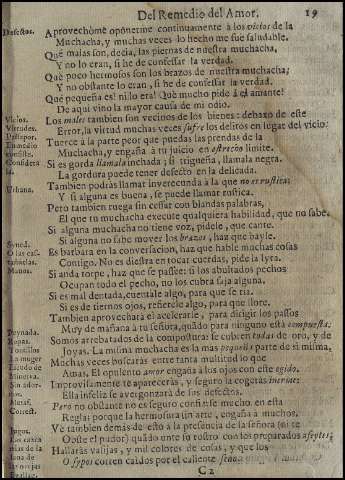 Del Remedio del Amor. 19
Defectos. Aprovechòme oponerme continuamente à los vicios de la
Muchacha, y muchas veces lo hecho me fue saludable.
Què malas son, decia, las piernas de nuestra muchacha,
Y no lo eran, si he de confessar la verdad.
Què poco hermosos son los brazos de nuestra muchacha;
Y no obstante lo eran, si hé de confessar la verdad.
Què pequeña es! ni lo era! Què mucho pide à el amante!
De aqui vino la mayor causa de mi odio.
Vicios. Los males tambien son vecinos de los bienes: debaxo de este
Virtudes. Error, la virtud muchas veces sufre los delitos en lugar del vicio:
Tuerce à la parte peor que puedas las prendas de la
En medio Muchacha, y engaña à tu juicio en estrecho limite.
consiste. Si es gorda llamala inchada; si trigueña, llamala negra.
La gordura puede tener defecto en la delicada.
Urbana. Tambien podràs llamar inverecunda à la que no es rustica:
Y si alguna es buena, se puede llamar rustica.
Pero tambien ruega sin cessar con blandas palabras,
El que tu muchacha execute qualquiera habilidad, que no sabe.
Si alguna muchacha no tiene voz, pidele, que cante.
Si alguna no sabe mover los brazos, haz que bayle.
Es barbara en la conversacion, haz que hable muchas cosas
Contigo. No es diestra en tocar cuerdas, pide la lyra.
Manos. Si anda torpe, haz que se passée: si los abultados pechos
Ocupan todo el pecho, no los cubra faja alguna.
Si es mal dentada, cuentale algo, para que se ria.
Si es de tiernos ojos, refierele algo, para que llore.
Tambien aprovecharà el acelerarte, para dirigir los passos
Peynada. Muy de mañana à tu señora, quãdo para ninguno està compuesta:
Ropas. Somos arrebatados de la compostura: se cubren todas de oro, y de
Joyas. La misma muchacha es la mas pequeña parte de sì misma,
La muger Muchas veces buscaràs entre tanta multitud lo que
Escudo de Amas. El opulento amor engaña à los ojos con este egido.
Minerva. Improvisamente te apareceràs, y seguro la cogeràs inerme:
Sin ador- Ella infeliz se avergonzarà de sus defectos.
nos. Pero no obstante no es seguro confiarse mucho en esta
Correct. Regla: porque la hermosura sin arte, engaña à muchos.
Ve tambien demàs de esto à la presencia de la señora (ni te
Obste el pudor) quãdo unte su rostro con los preparados afeytes:
Hallaràs valijas, y mil colores de cosas, y que los
O sypos corren caidos por el caliente seno
C2